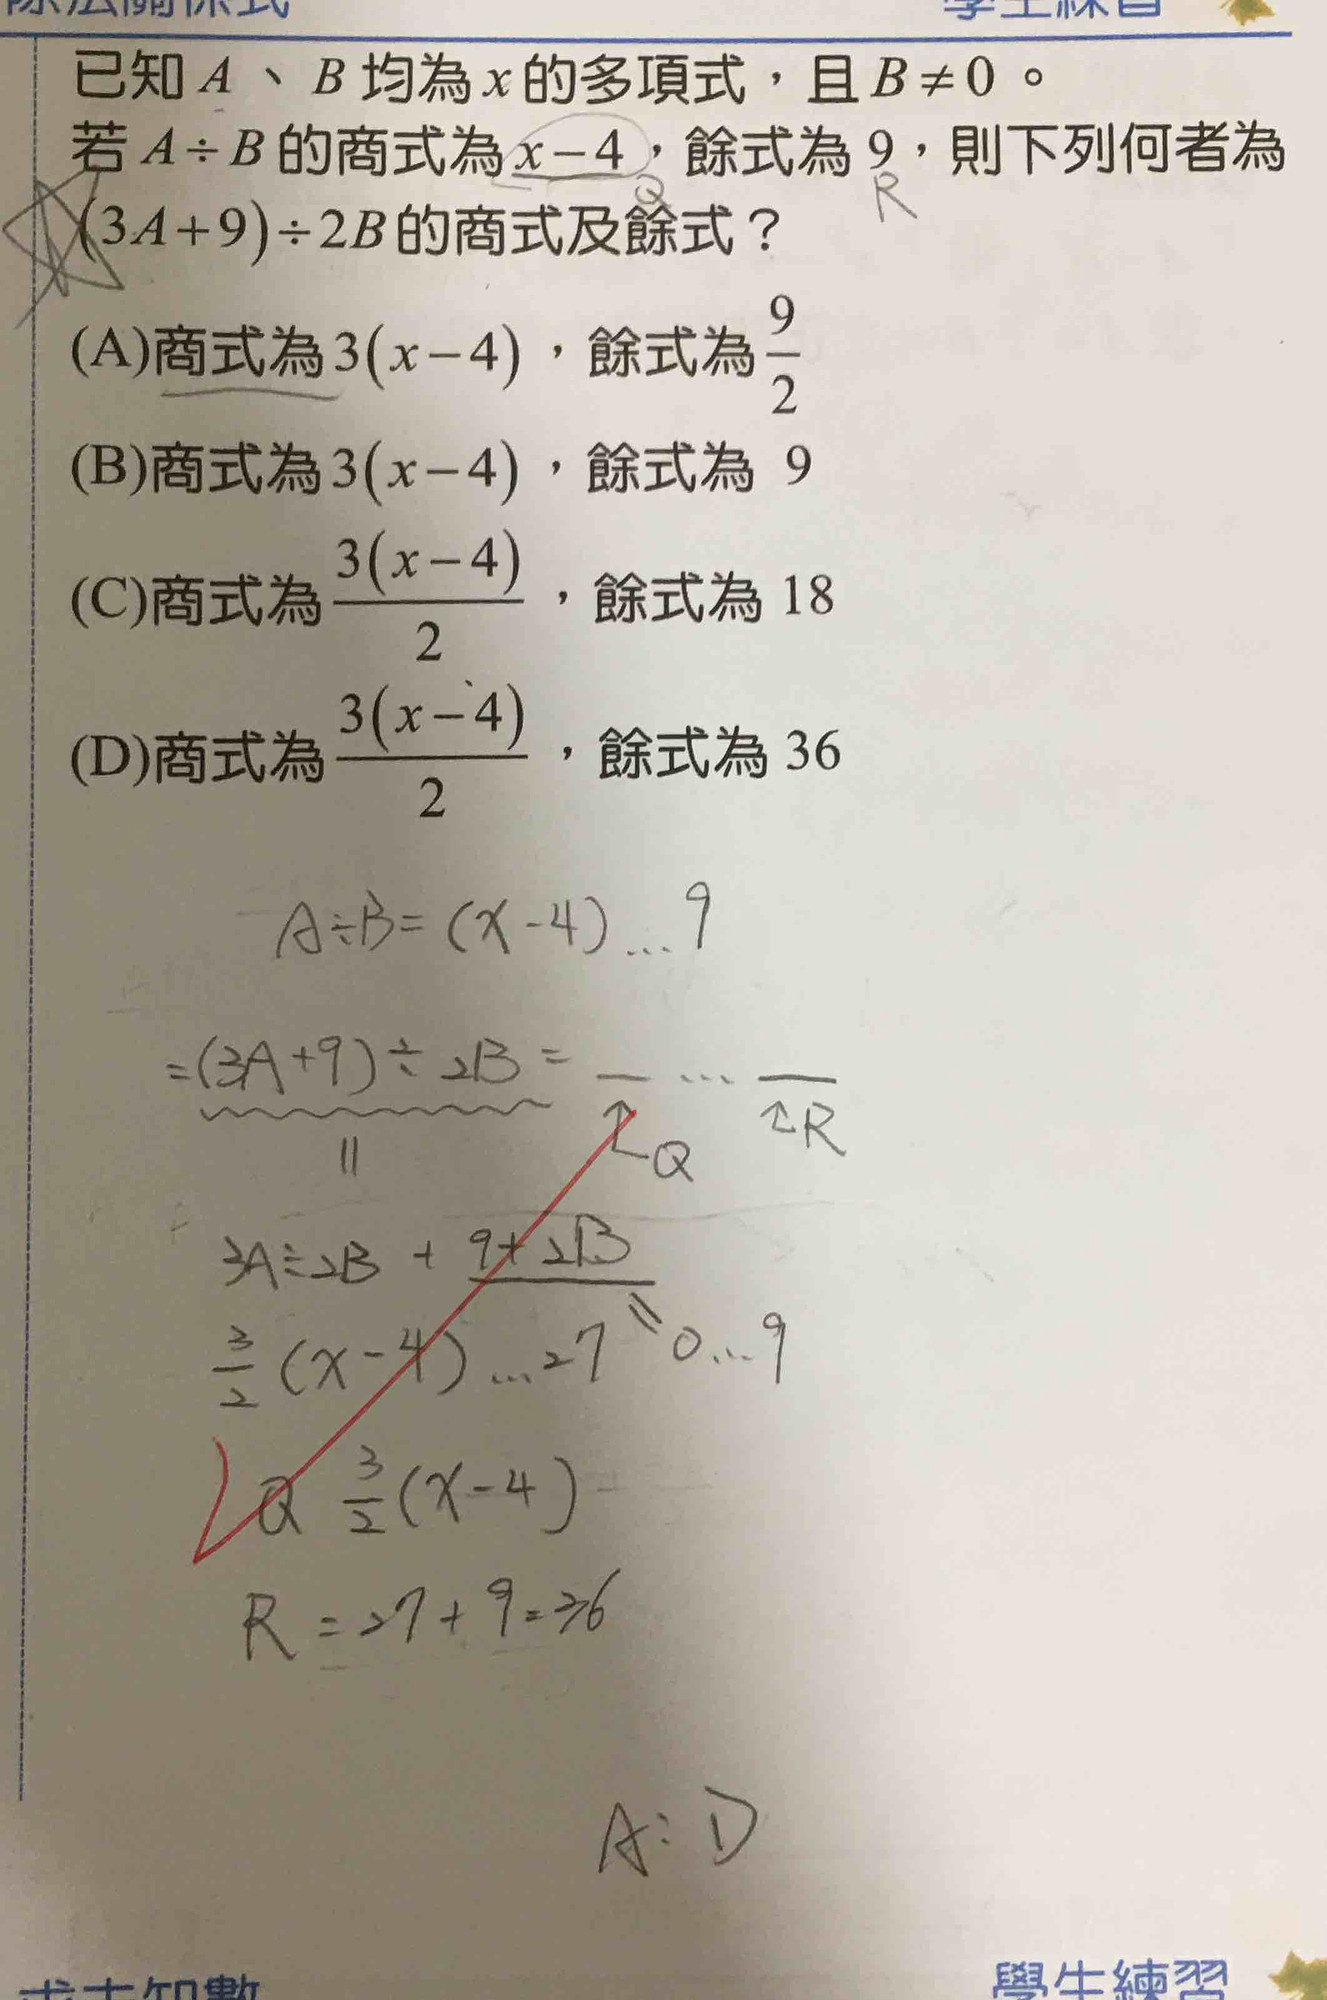 除法關係式 學生練習
已知 A 、 B 均為 x 的多項式，且 B ≠ 0 。
若 A ÷ B 的商式為 x − 4，餘式為 9，則下列何者為
Q R
(3A + 9) ÷ 2B 的商式及餘式？
(A)商式為 3(x − 4) ，餘式為 9/2
(B)商式為 3(x − 4) ，餘式為 9
(C)商式為 3(x − 4)/2 ，餘式為 18
(D)商式為 3(x − 4)/2 ，餘式為 36
A÷B = (x-4) ... 9
=(3A+9) ÷ 2B = _ ... _
|| ↑Q ↑R
3A÷2B + 9÷2B
3/2 (x-4) ...27 || 0...9
Q 3/2 (x-4)
R = 27 + 9 = 36
A: D
求未知數 學生練習